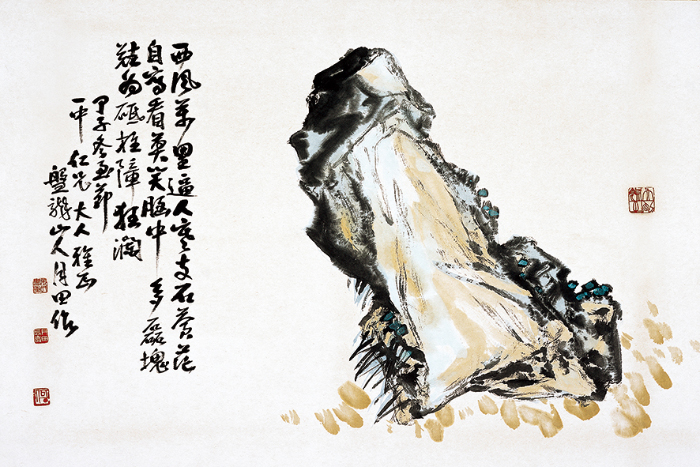 西風萬里逼人寒支石蒼茫
自寫看莫笑胸中多磊塊
為砥柱障狂瀾
甲子冬至節
一中仁兄大人雅正
盤龍山人田作